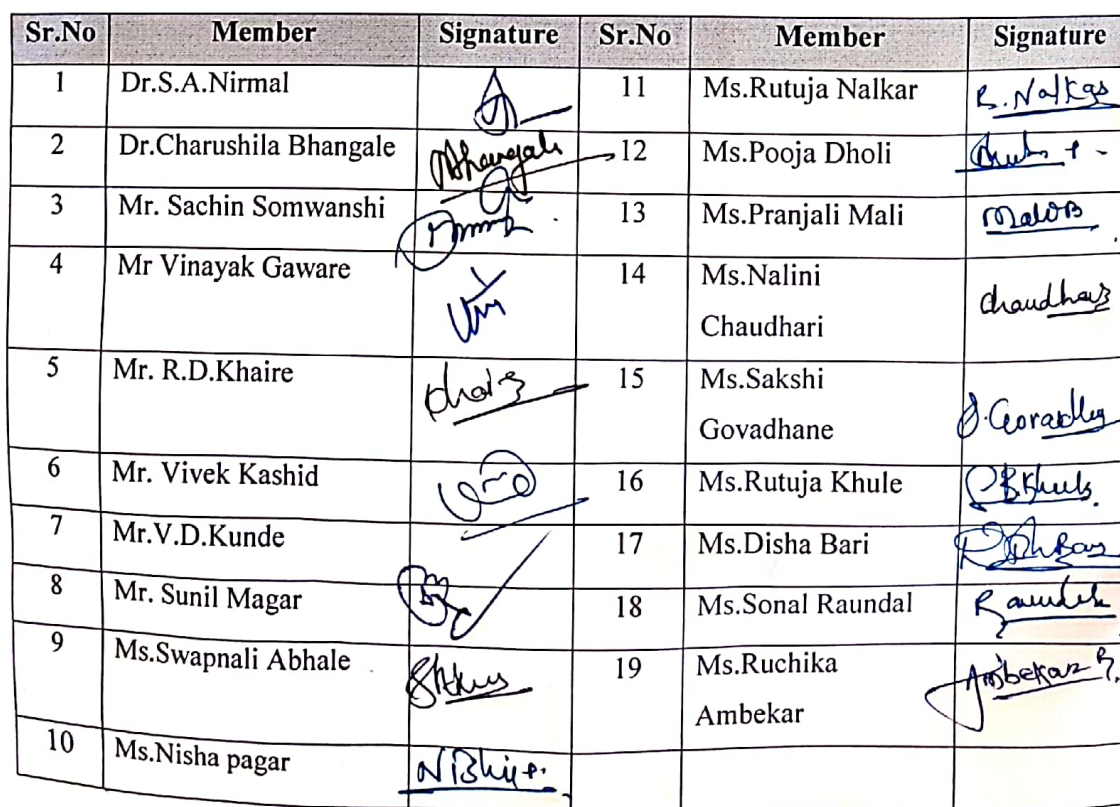 Sr.No Member Signature Sr.No Member Signature
1 Dr.S.A.Nirmal 11 Ms.Rutuja Nalkar R.Nalkar
2 Dr.Charushila Bhangale Bhangale 12 Ms.Pooja Dholi
3 Mr. Sachin Somwanshi 13 Ms.Pranjali Mali
4 Mr Vinayak Gaware 14 Ms.Nalini
Chaudhari chaudhari
5 Mr. R.D.Khaire 15 Ms.Sakshi
Govadhane
6 Mr. Vivek Kashid 16 Ms.Rutuja Khule
7 Mr.V.D.Kunde 17 Ms.Disha Bari
8 Mr. Sunil Magar 18 Ms.Sonal Raundal
9 Ms.Swapnali Abhale 19 Ms.Ruchika
Ambekar Ambekar R.
10 Ms.Nisha pagar